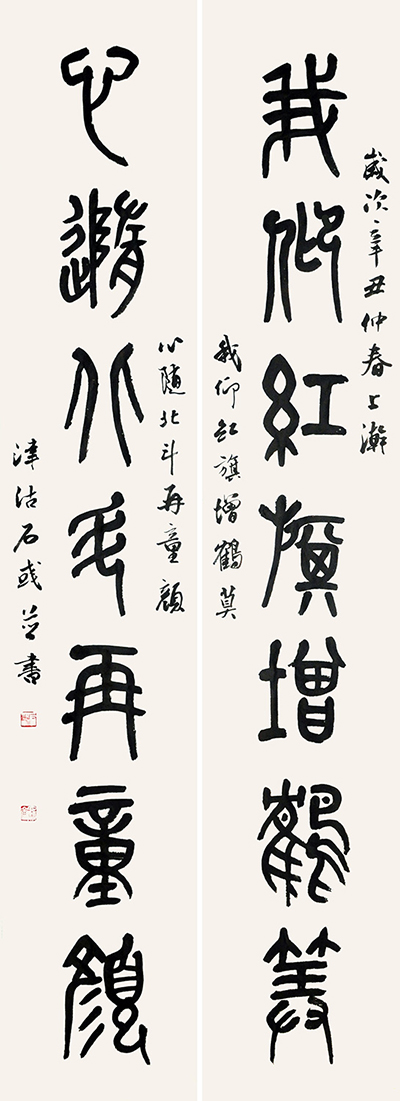 歲次辛丑仲春上澣
我仰紅旗增鶴算
我仰紅旗增鶴算
心隨北斗再童顏
心隨北斗再童顏
津沽石彧並書